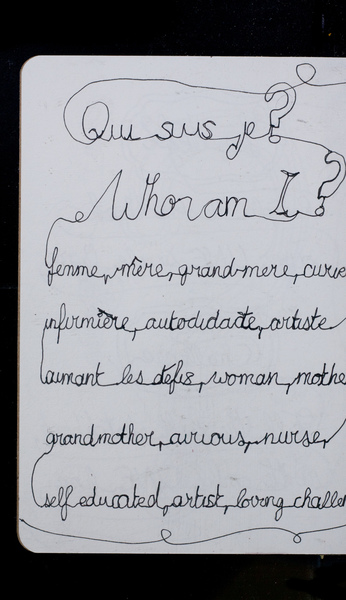 Qui suis je?
Who am I?
femme, mère, grand-mere,
infirmière, autodidacte, artiste
aimant les défis, woman,
grandmother, curious, nurse,
self educated, artist, loving